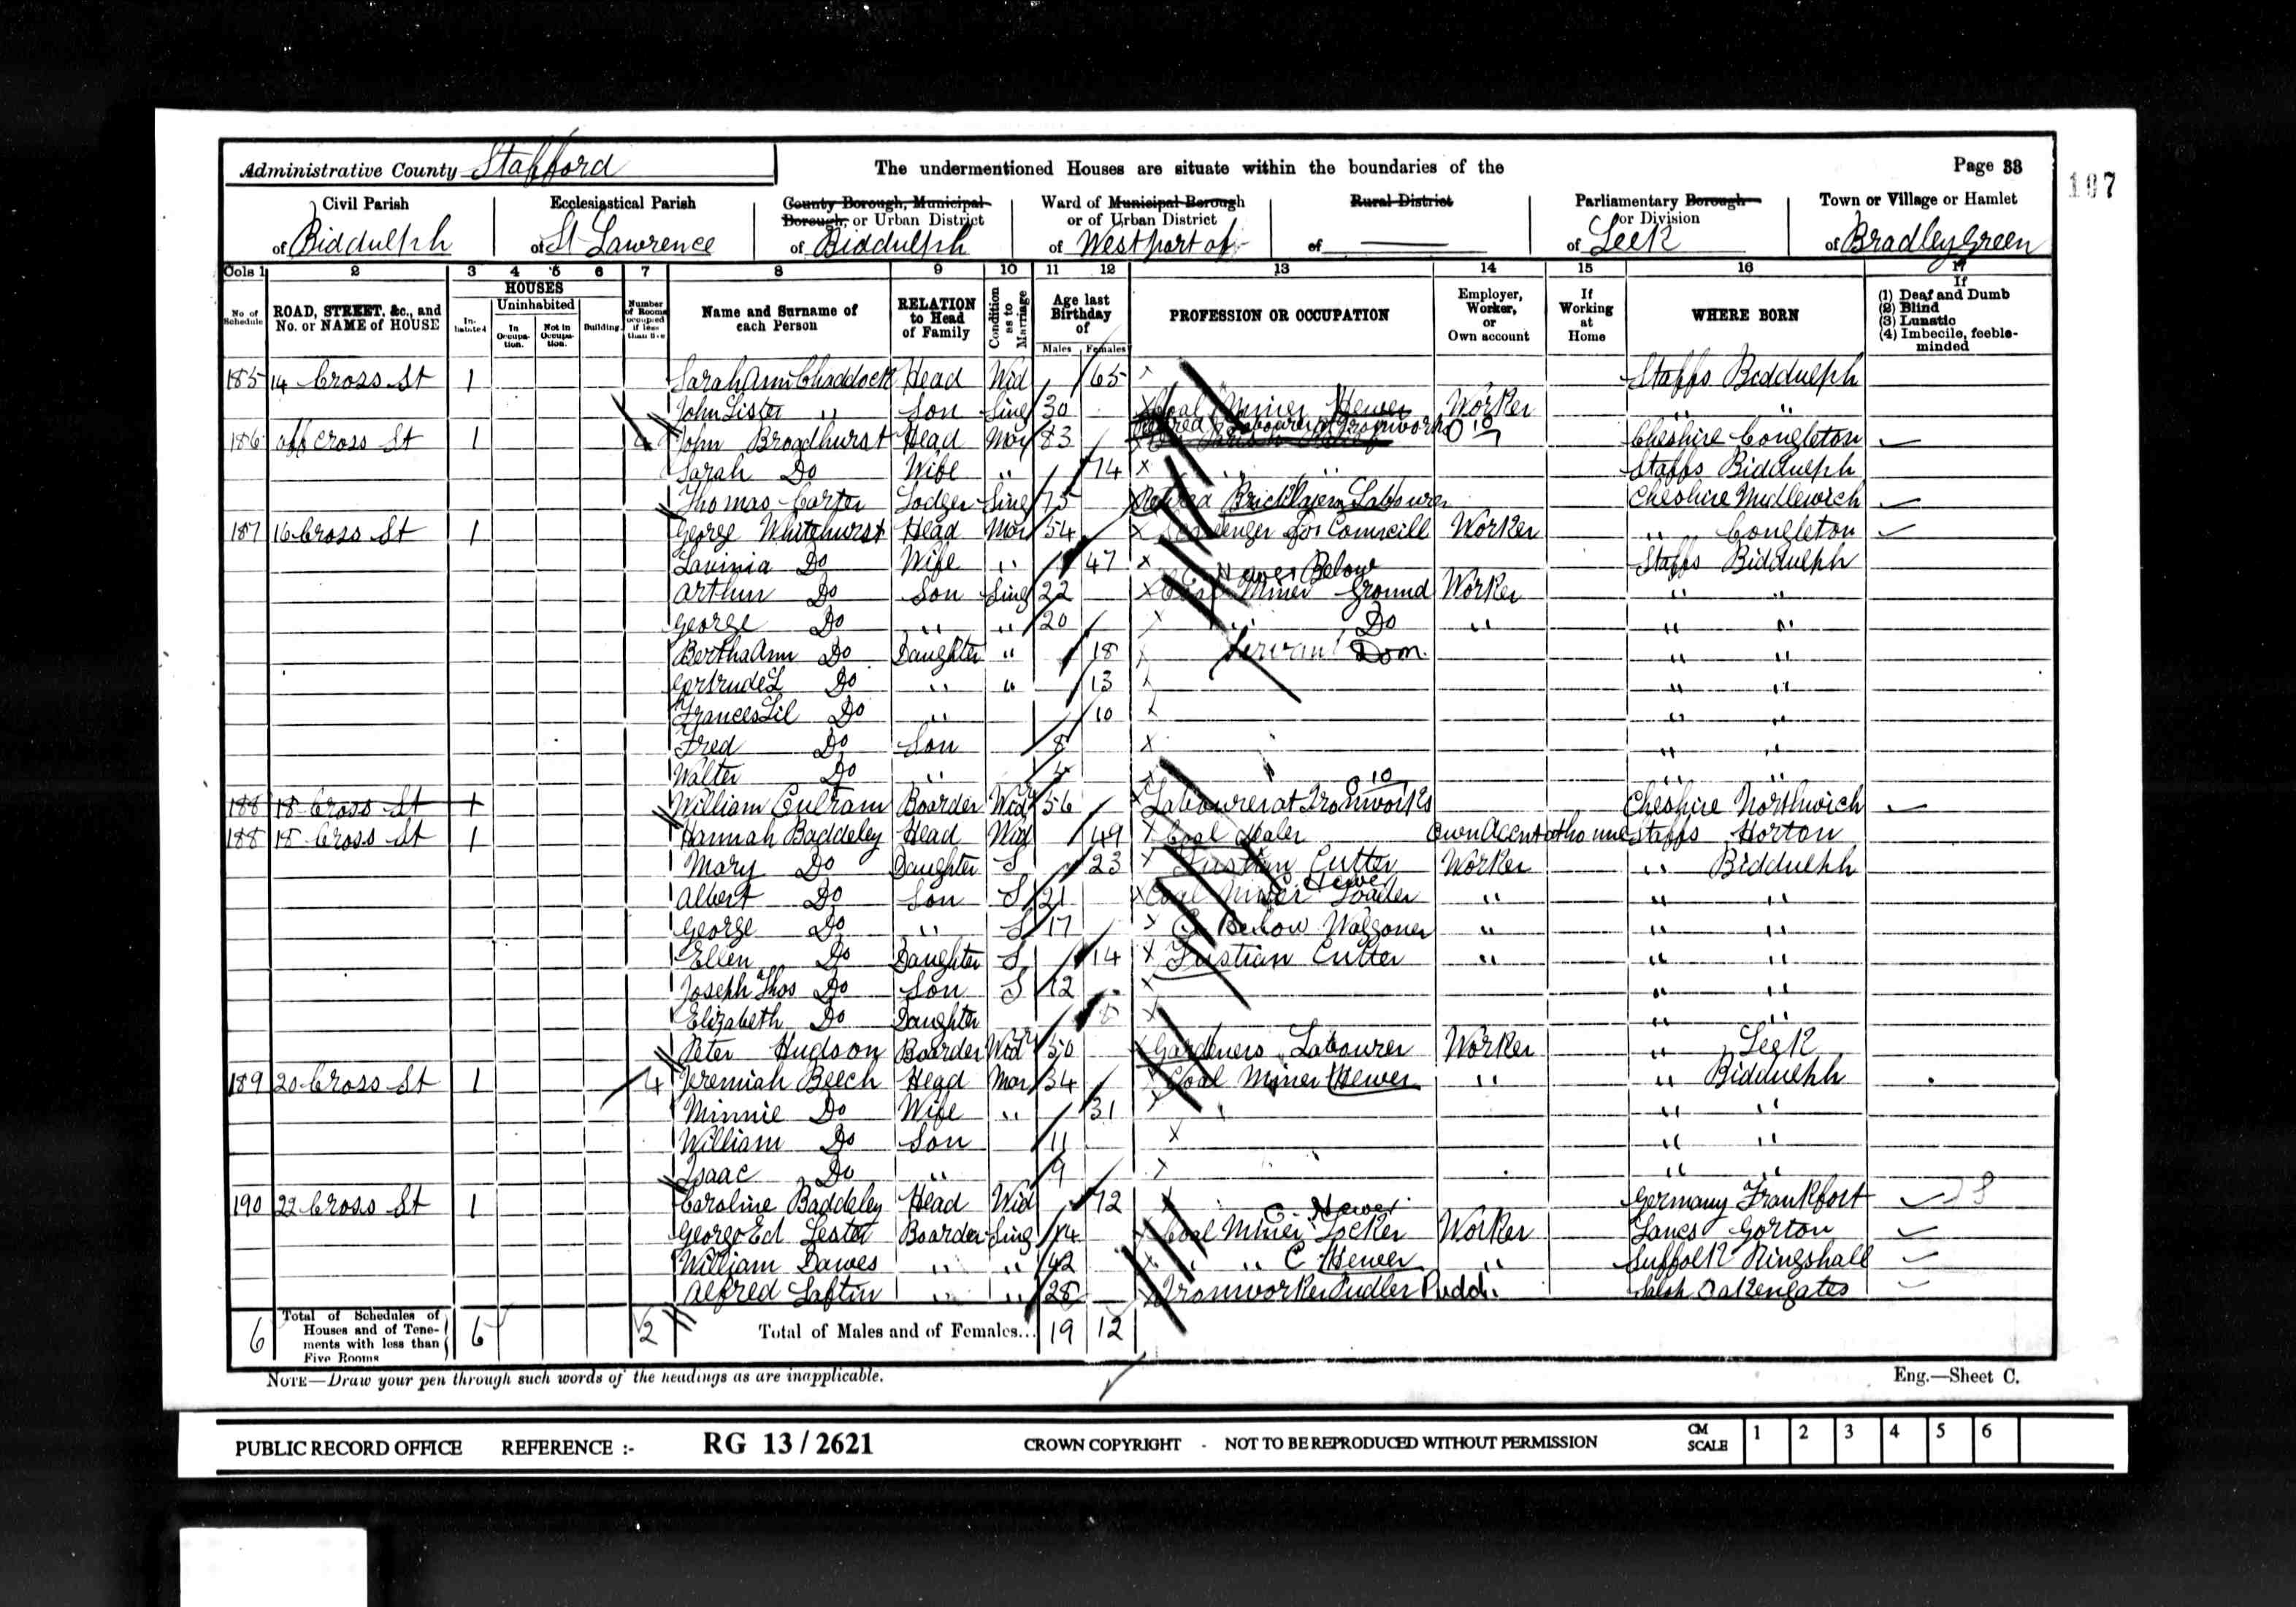 Administrative County Stafford
The undermentioned Houses are situate within the boundaries of the
Page 33
107
Civil Parish of Biddulph
Ecclesiastical Parish of St Lawrence
County Borough, Municipal Borough, or Urban District of Biddulph
Ward of Municipal Borough or of Urban District of West part of
Rural District of
Parliamentary Borough or Division of Leek
Town or Village or Hamlet of Bradley Green
Cols 1 2 3 4 5 6 7 8 9 10 11 12 13 14 15 16 17
No. of Schedule
ROAD, STREET, &c., and No. or NAME of HOUSE
HOUSES
Inhabited
Uninhabited
In Occupation.
Not in Occupation.
Building
Number of Rooms occupied if less than five
Name and Surname of each Person
RELATION to Head of Family
Condition as to Marriage
Age last Birthday of
Males Females
PROFESSION OR OCCUPATION
Employer, Worker, or Own account
If Working at Home
WHERE BORN
If (1) Deaf and Dumb (2) Blind (3) Lunatic (4) Imbecile, feeble-minded
185 14 Cross St 1 Sarah Ann Chaddock Head Wid 65 x Staffs Biddulph
John Lister " Son Sing 30 x Coal Miner Hewer Worker " "
186 off Cross St 1 4 John Broadhurst Head Mar 83 Retired Labourer at Ironworks Cheshire Congleton
Sarah Do Wife " 74 x " " Staffs Biddulph
Thomas Carter Lodger Sing 75 x Retired Bricklayers Labourer Cheshire Midlewich
187 16 Cross St 1 George Whitehurst Head Mar 54 x Scavenger for Council Worker " Congleton
Lavinia Do Wife " 47 x Staffs Biddulph
Arthur Do Son Sing 22 x Coal Miner Hewer Below Ground Worker " "
George Do " " 20 x " Do " " "
Bertha Ann Do Daughter " 18 x Servant Dom. " "
Gertrude L Do " " 13 x " "
Frances Lil Do " 10 x " "
Fred Do Son 8 x " "
Walter Do " 4 x " "
188 18 Cross St 1 William Cultram Boarder Widr 56 x Labourer at Ironworks 10 Cheshire Northwich
188 18 Cross St 1 Hannah Baddeley Head Wid 49 x Coal Dealer Own Accnt at home Staffs Horton
Mary Do Daughter S 23 x Fustian Cutter Worker " Biddulph
Albert Do Son S 21 x Coal Miner Loader Hewer " " "
George Do " S 17 x C Below Waggoner " " "
Ellen Do Daughter S 14 x Fustian Cutter " " "
Joseph Thos Do Son S 12 x " "
Elizabeth Do Daughter 8 x " "
Peter Hudson Boarder Widr 50 x Gardeners Labourer Worker " Leek
189 20 Cross St 1 4 Jeremiah Beech Head Mar 34 x Coal Miner Hewer " " Biddulph
Minnie Do Wife " 31 x " "
William Do Son 11 x " "
Isaac Do " 9 x " "
190 22 Cross St 1 Caroline Baddeley Head Wid 72 x Germany Frankfort
George Ed Lester Boarder Sing 14 x Coal Miner Locker C. Hewer Worker Lancs Gorton
William Dawes " " 42 x " " C Hewer " Suffolk Ringshall
Alfred Laftin " " 28 x Ironworker Pudler Pudd. Salop Oakengates
6 Total of Schedules of Houses and of Tenements with less than Five Rooms 6 2 Total of Males and of Females... 19 12
NOTE—Draw your pen through such words of the headings as are inapplicable.
Eng.—Sheet C.
PUBLIC RECORD OFFICE REFERENCE :- RG 13 / 2621 CROWN COPYRIGHT - NOT TO BE REPRODUCED WITHOUT PERMISSION CM SCALE 1 2 3 4 5 6